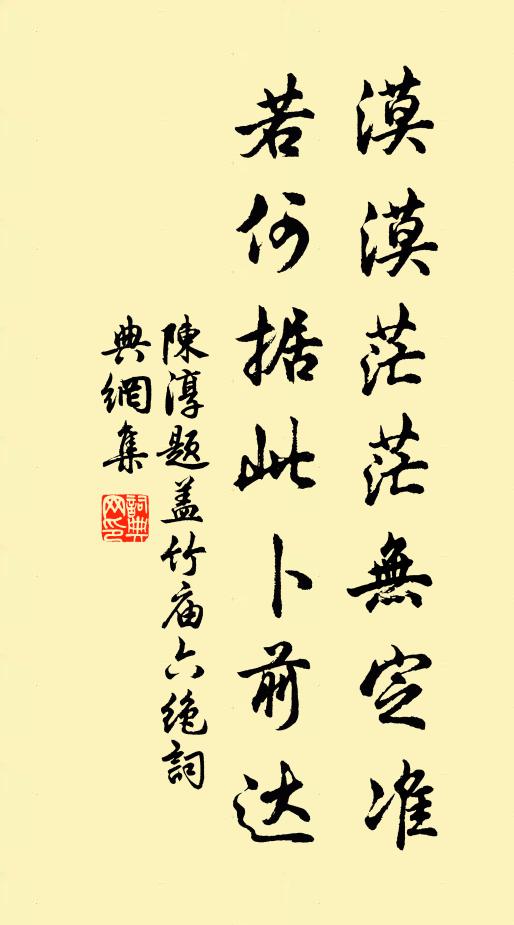 漠漠茫茫無定准
若何据此卜前达
陳淳题盖竹庙六绝詞
典網集
詞典网印